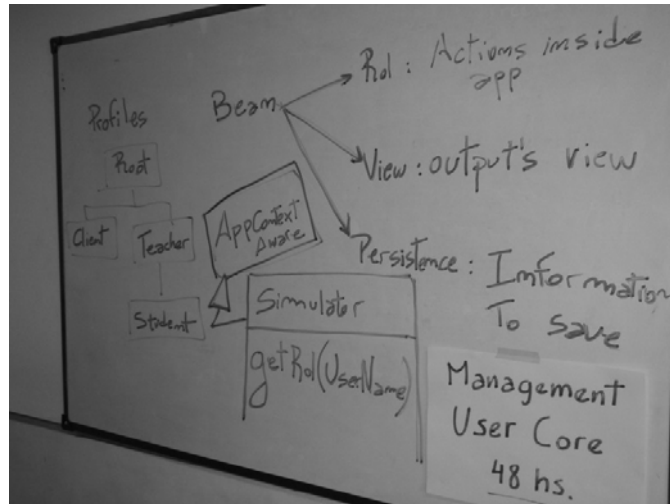 Profiles
Root
Client
Teacher
Student
AppContext
Aware
Beam
Rol : Actions inside
app
View : output's view
Persistence : Information
To save
Simulator
getRol(UserName)
Management
User Core
48 hs.